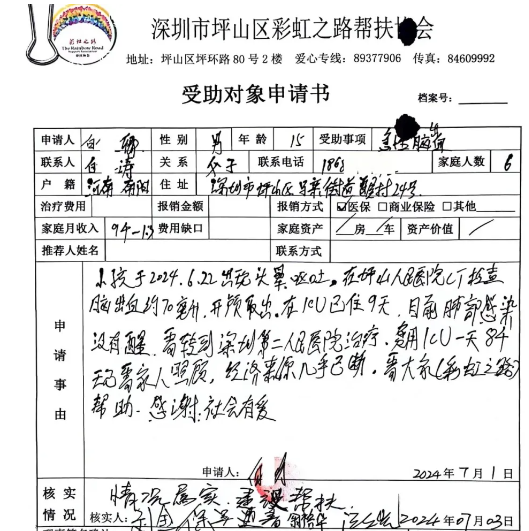 深圳市坪山区彩虹之路帮扶协会
彩虹之路
The Rainbow Road
地址：坪山区坪环路80号2楼 爱心专线：89377906 传真：84609992
受助对象申请书
档案号：
申请人 白 性别 男 年龄 15 受助事项 脑
联系人 白涛 关系 父子 联系电话 186 家庭人数 6
户籍 河南 南阳 住址 深圳市坪山区 街道 村24号
治疗费用 报销金额 报销方式 ☑医保 □商业保险 □其他
家庭月收入 94-13 费用缺口 家庭资产 / 房 / 车 资产价值 /
推荐人姓名 联系方式
申请事由
小孩于2024.6.22出现头晕呕吐．在坪山人民医院CT检查
脑出血约70毫升，开颅取出．在ICU已住9天，目前肺部感染
没有醒．需转到深圳第二人民医院治疗．费用ICU一天84
需家人照顾，经济来源几乎已断，需大家(彩虹之路)
帮助．感谢社会有爱
申请人： 2024年7月1日
核实情况
情况属实．建议帮扶
核实人： 2024年07月03日